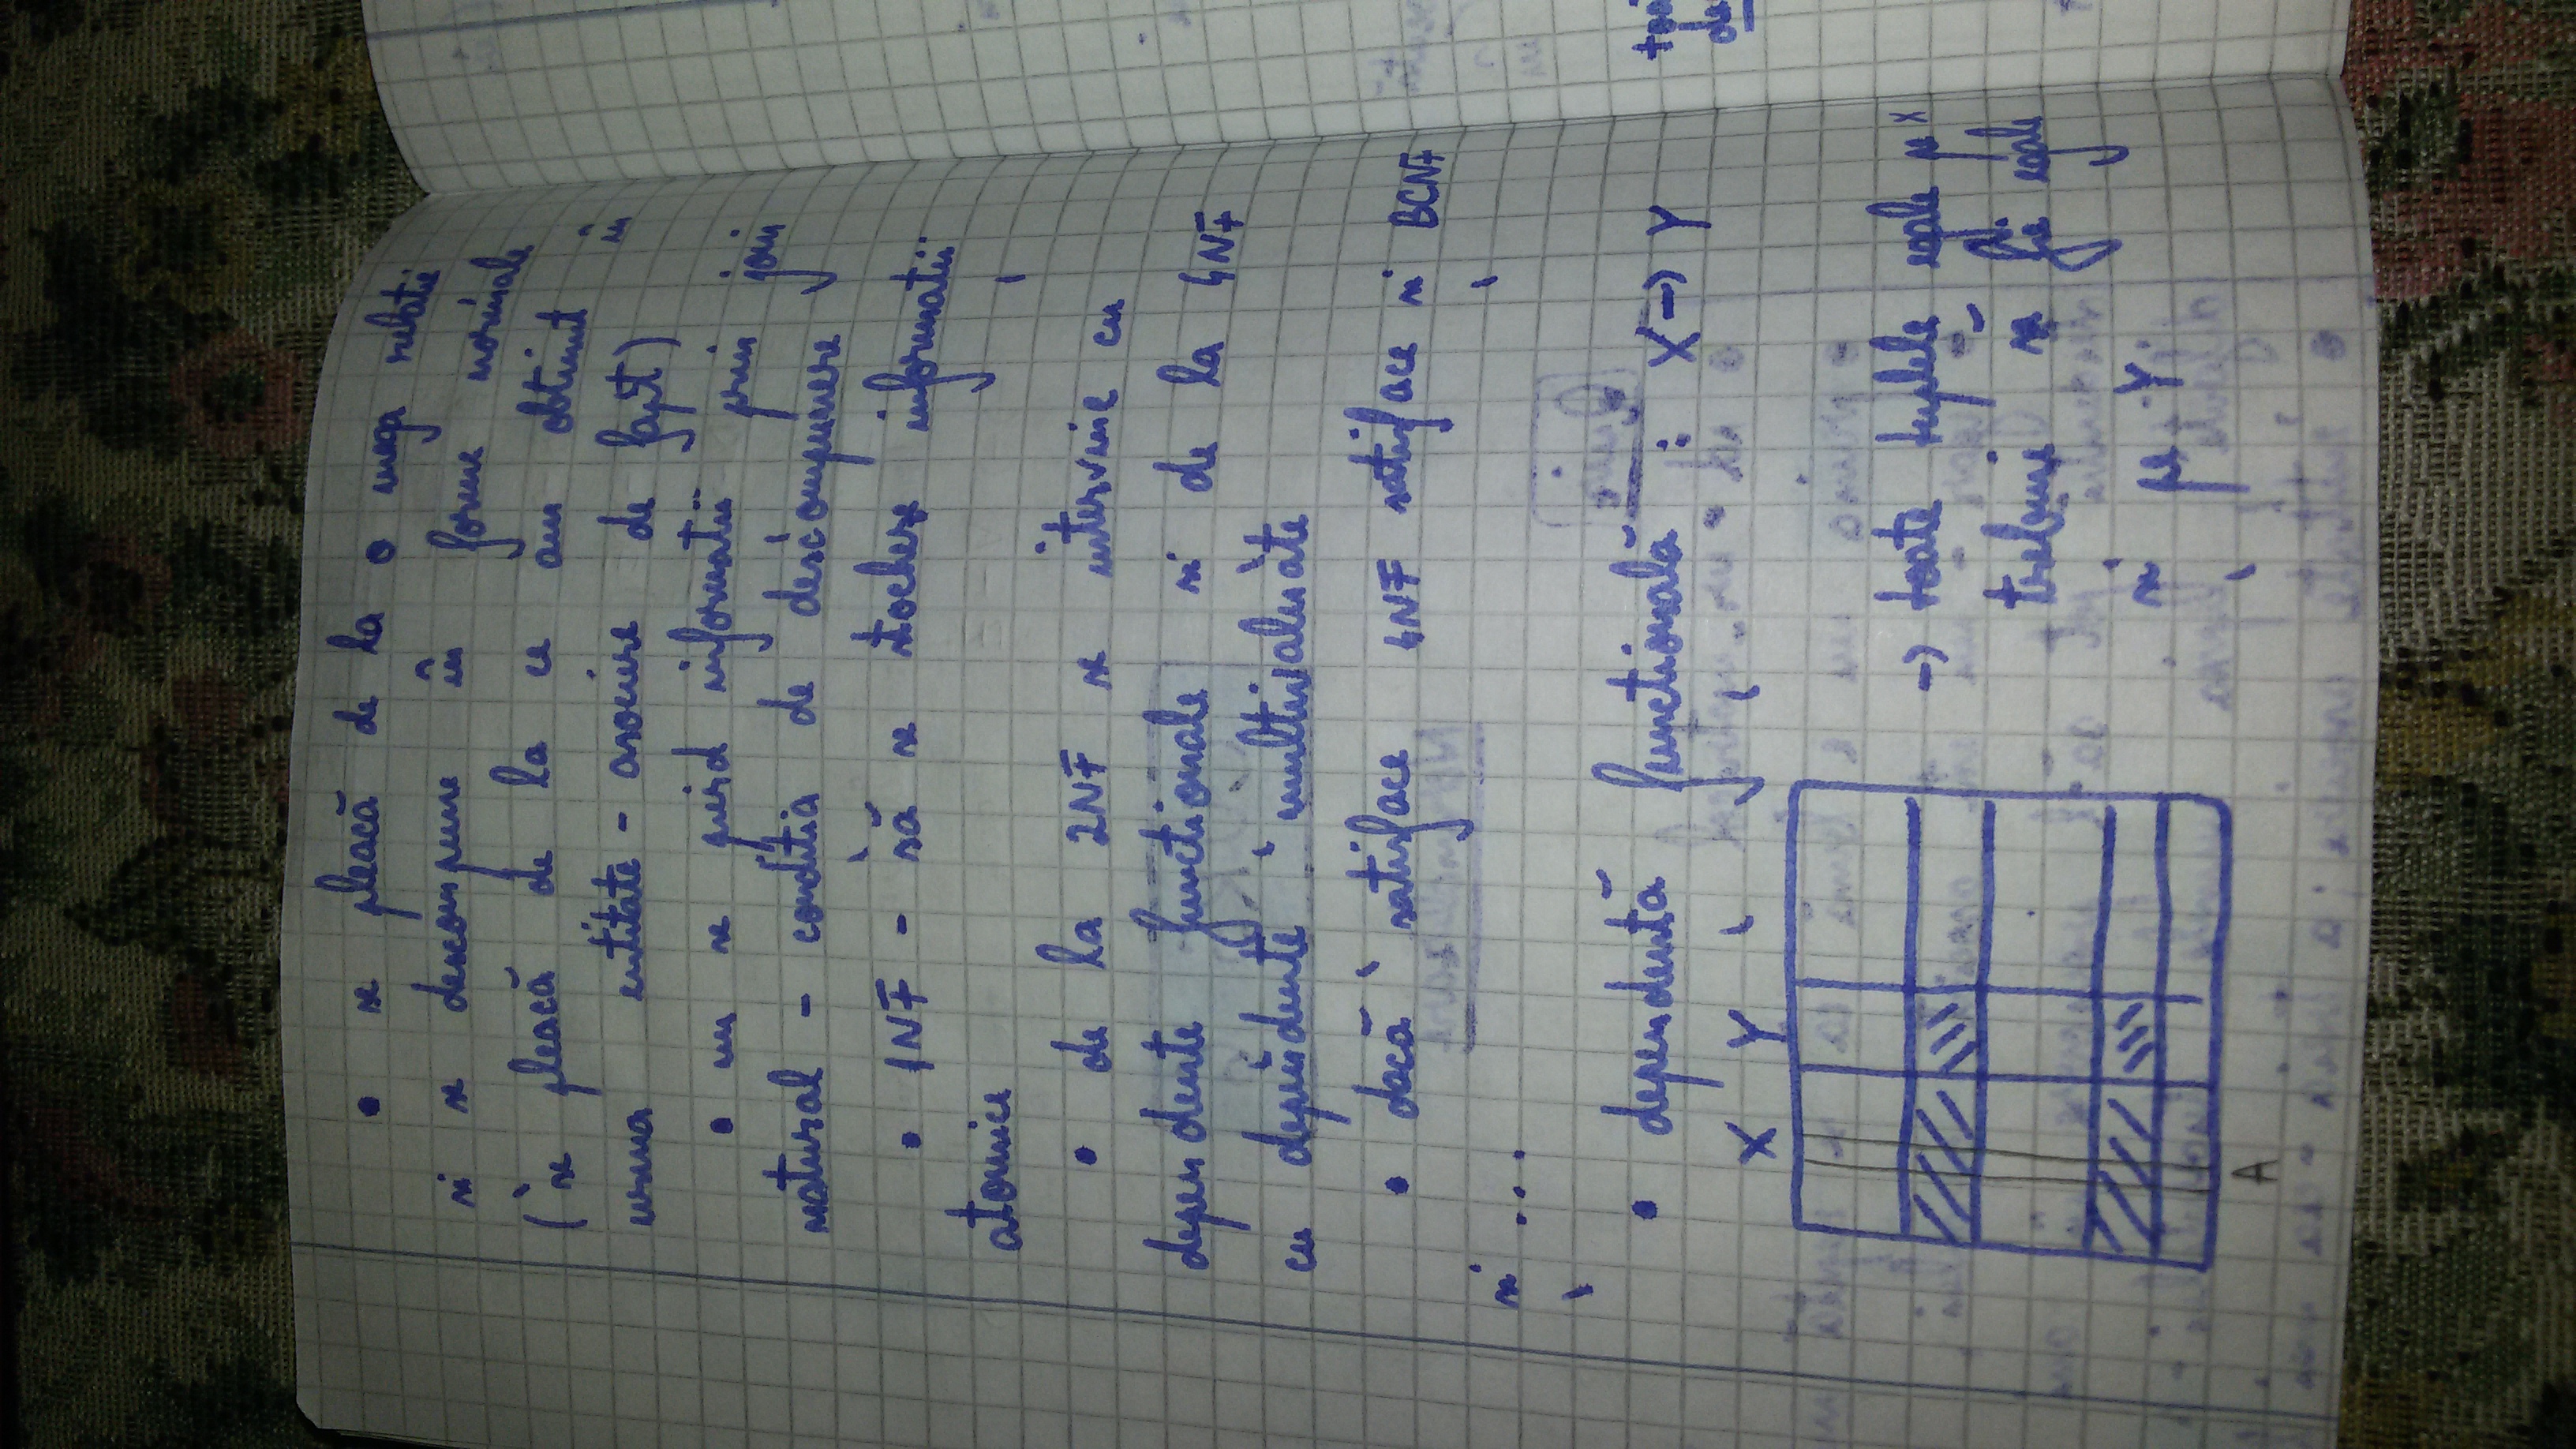 • se pleacă de la o mega relație
și se descompune în forme normale
(se pleacă de la ce am obținut în
urma entitate - asociere de fapt)
• nu se pierd informații prin join
natural - condiția de descompunere
• 1NF - să se stocheze informații
atomice
• de la 2NF se intervine cu
dependențe funcționale și de la 4NF
cu dependențe multivaluate
• dacă satisface 4NF satisface și BCNF
și ...
• dependență funcțională : X -> Y
X Y
-> toate tuplele egale pe X
trebuie să fie egale
și pe Y
A